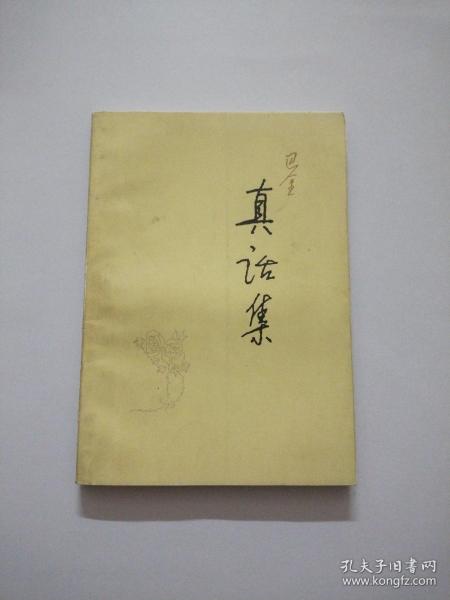 巴金
真话集
孔夫子旧书网
www.kongfz.com